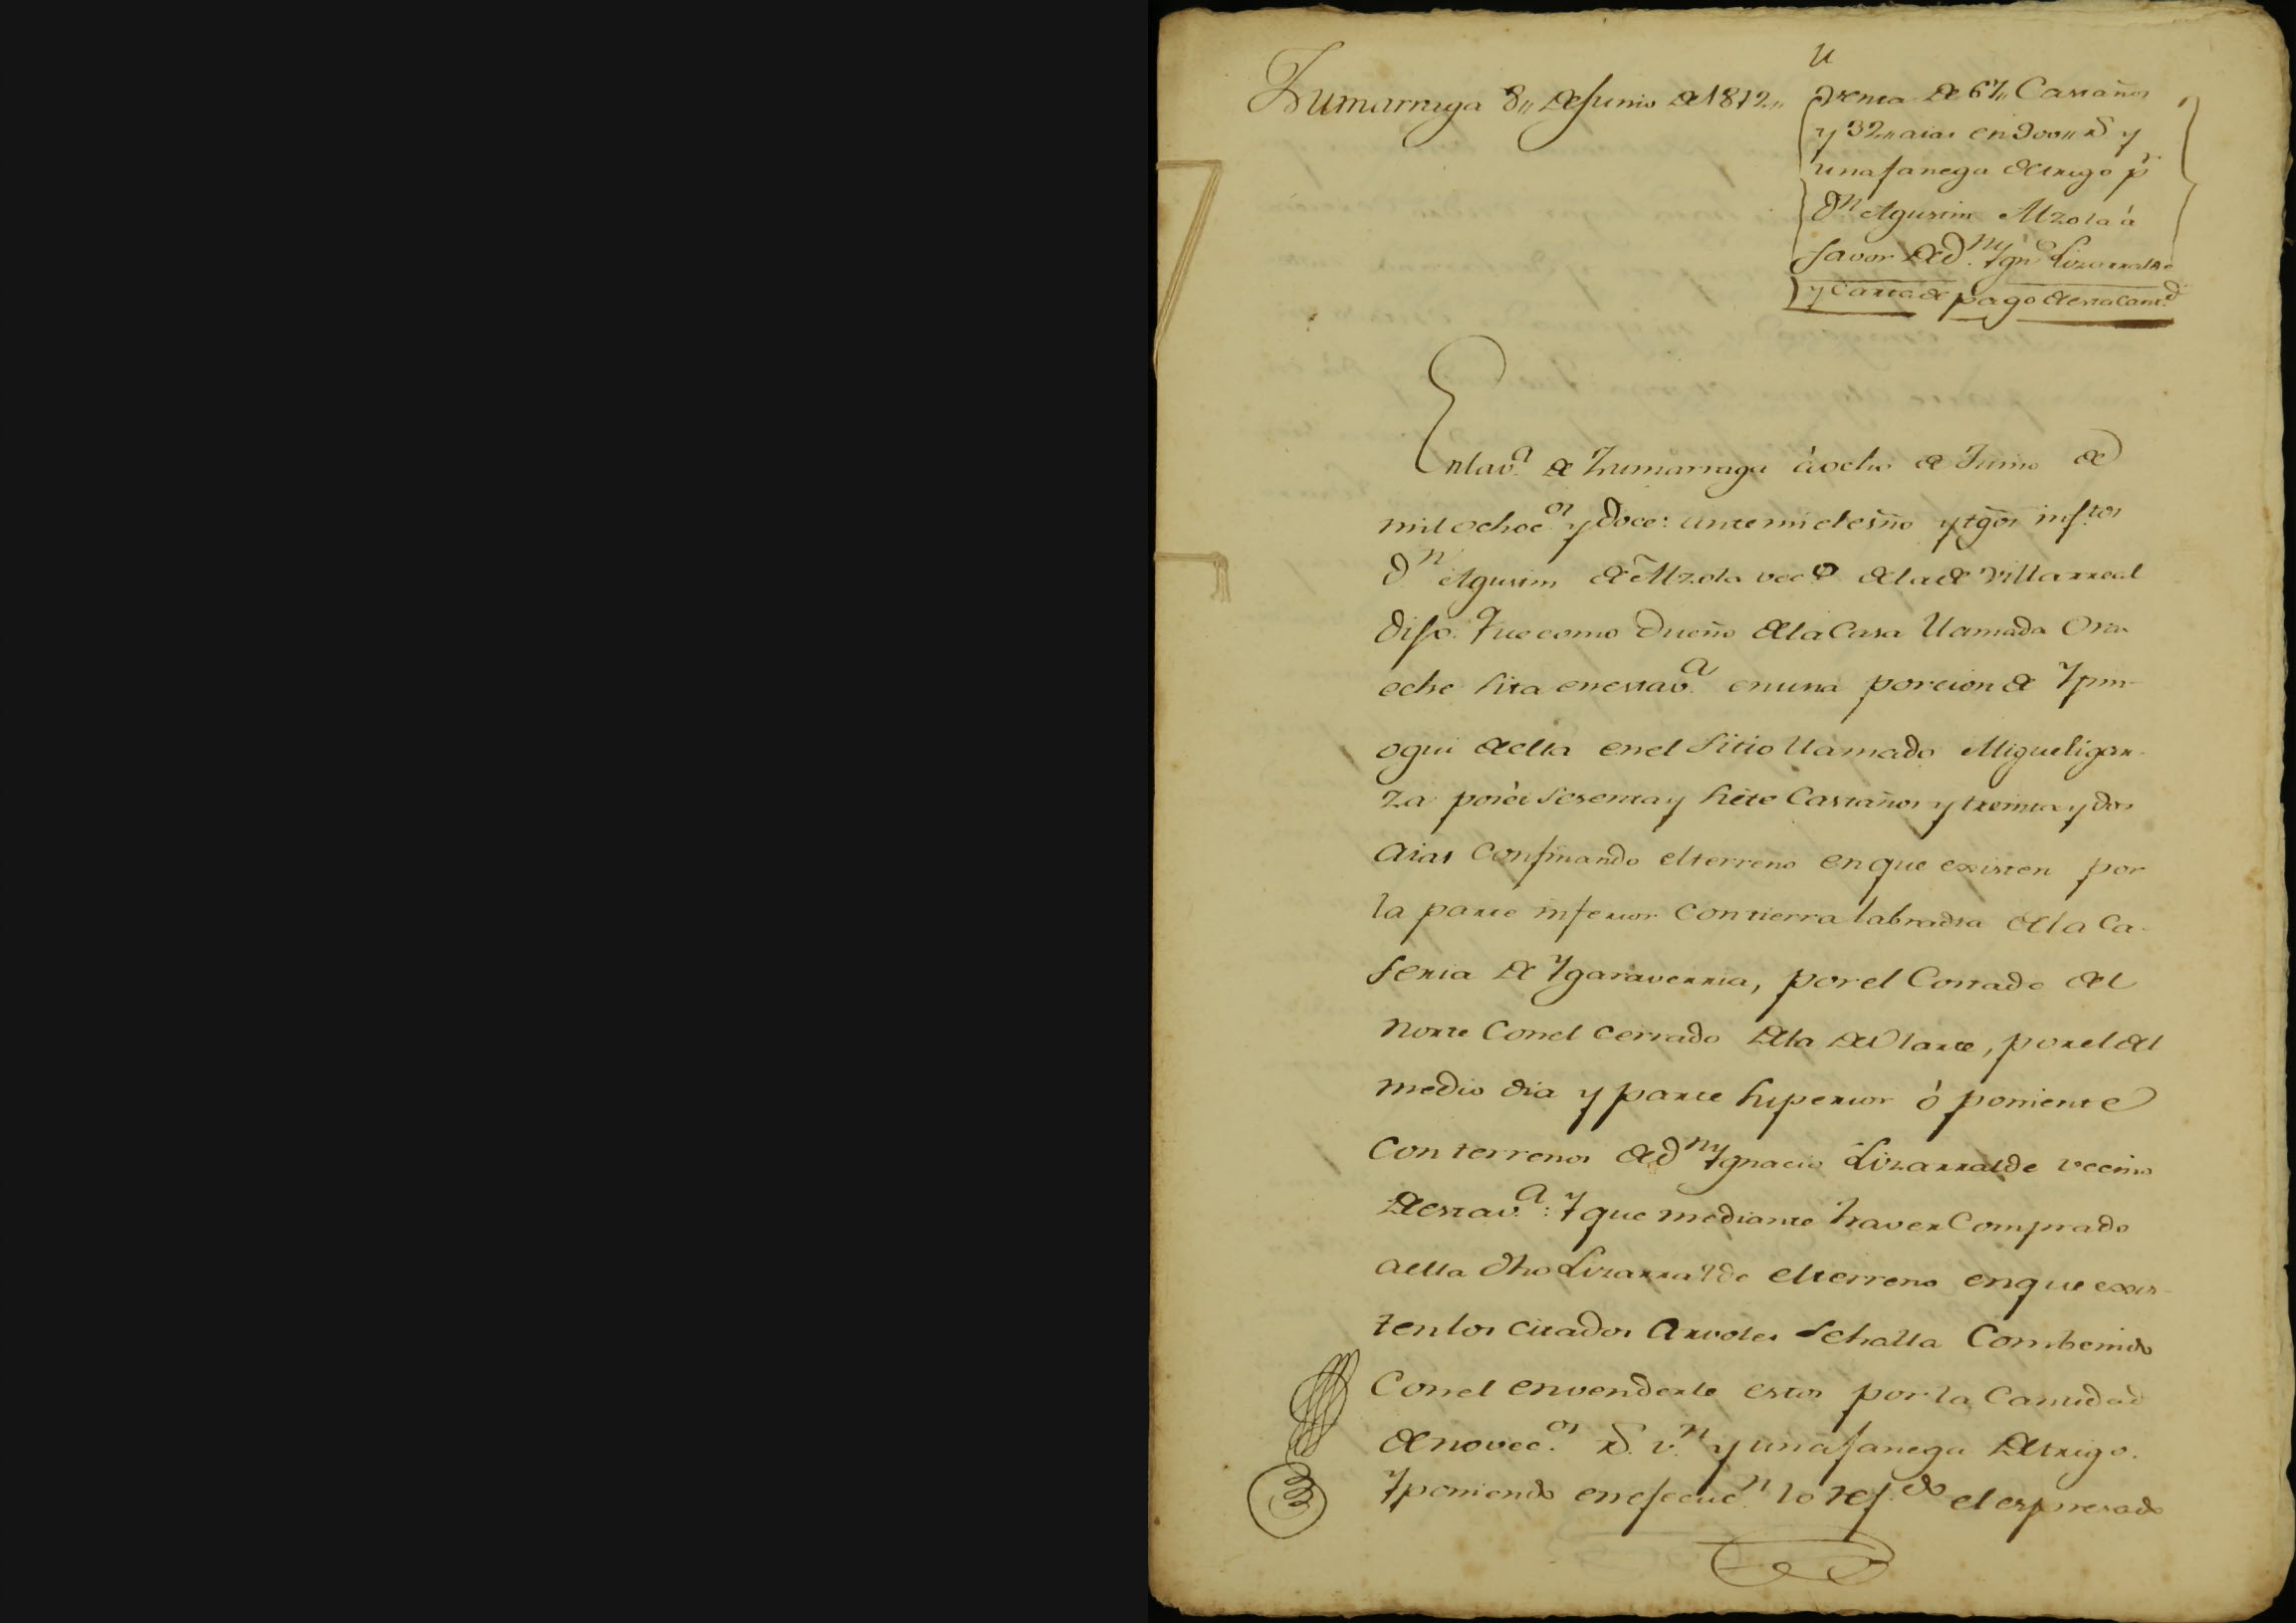 Zumarraga 8,, de Junio de 1812,,
Venta de 67,, Castaños
y 32,, aias en 900,, rs y
una fanega de trigo pr
Dn Agustin Alzola à
favor de dn Ygno Lizarralde
y carta de pago de esta cantd
En la va de Zumarraga à ocho de Junio de
mil ochocos y doce: ante mi el esño y tgos infrtos
Dn Agustin de Alzola veco de la de Villarreal
Dijo: Que como Dueño de la Casa llamada
eche sita en esta va en una porcion de
ogui de ella en el sitio llamado Migueligar-
za poseé sesenta y siete Castaños y treinta y dos
aias confinando el terreno en que existen por
la parte inferior con tierra labradia de la Ca-
seria de Ygaraverria, por el Costado del
norte con el cerrado de la de Olarte, por el del
medio dia y parte superior ó poniente
con terrenos de dn Ygnacio Lizarralde vecino
de esta va: Y que mediante haver Comprado
a ella dho Lizarralde el terreno en que exis-
ten los citados arvoles se halla Combenido
con el en venderle estos por la Cantidad
de novecos rs. vn y una fanega de trigo.
Y poniendo en efecucn lo refdo el espresado